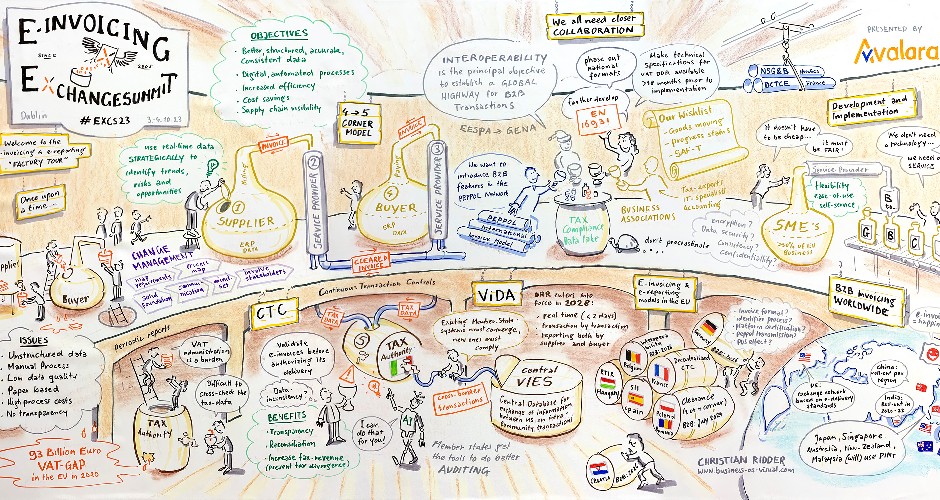 E-INVOICING
SINCE 2005
EXCHANGESUMMIT
Dublin
#EXCS23
3.-4.10.23
Welcome to the
invoicing & e-reporting
"FACTORY TOUR"
Once upon
a time...
OBJECTIVES
• Better, structured, accurate,
Consistent data
• Digital, automated processes
• Increased efficiency
• Cost savings
• Supply chain visibility
use real-time data
STRATEGICALLY to
identify trends,
risks and
opportunities
4→5
CORNER
MODEL
INVOICE
1
SUPPLIER
ERP
DATA
2
SERVICE PROVIDER
INVOICE
5
BUYER
ERP
DATA
3
SERVICE PROVIDER
CLEARED
INVOICE
CHANGE
MANAGEMENT
process
map
involve
stakeholders
INTEROPERABILITY
is the principal objective
to establish a GLOBAL
HIGHWAY for B2B
Transactions
EESPA → GENA
We all need closer
COLLABORATION
phase out
national
formats
further develop
EN
16931
Make technical
specifications for
VAT DDR available
>18 months prior to
implementation
Our Wishlist
- Goods moving
progress stams
SAF-T
Tax-expert
IT-specialist
Accounting
BUSINESS
ASSOCIATIONS
don't procrastinate
We want to
introduce B2B
features to the
PEPPOL Network
PEPPOL
International
Invoice Model
TAX
Compliance
Data Lake
NSG&B
Nordics
DCTCE
France
PRESENTED BY
Avalara
Development and
Implementation
it doesn't have
to be cheap...
it must
be FAIR!
We don't need
a technology...
we need a
SERVICE
Service Provider
Flexibility
ease-of-use
self-service
SME's
of EU
Business
encryption?
Data security?
Consistency
Confidentiality?
B
to..
G
B
C
Buyer
ISSUES
• Unstructured data
• Manual Process
• Low data quality
• Paper based
• High process costs
• No transparency
93 Billion Euro
VAT-GAP
in the EU in 2020
periodic reports
VAT
administration is
a burden
Difficult to
cross-check the
tax-data
TAX
Authority
CTC
Continuous Transaction Controls
Validate
e-invoices before
authorizing the
delivery
Data
inconsistency!
BENEFITS
- Transparency
- Reconciliation
- Increase tax-revenue
(prevent tax divergence)
TAX
DATA
TAX
DATA
TAX
DATA
5
TAX
Authority
I can
do that
for you!
AI
ViDA
DRR enters into
force in 2028:
• real time (<2 days)
• transaction by transaction
reporting both by
supplier and buyer
Existing Member State
systems must converge,
new ones must
comply
cross-border
transactions
Central
VIES
Central Database for
exchange of information
between MS on Intra-
Community transactions
Member states get
the tools to do better
AUDITING
E-invoicing &
e-reporting
models in the EU
Belgium
Germany
RTIR
Hungary
SII
Spain
France
Decentralised
CTC
Clearance
Poland
Romania
B2B: July 2024
Croatia
CHRISTIAN RIDDER
www.business-as-visual.com
B2B invoicing
WORLDWIDE
Invoice format?
identifier process?
platform certification?
paypal transmission?
PDF effect?
exchange network
based on e-delivery
standards
China:
roll-out per
region
India:
Roll-out in
2020-22
Japan, Singapore
Australia, New-Zealand,
Malaysia (will) use PINT
e-invoice